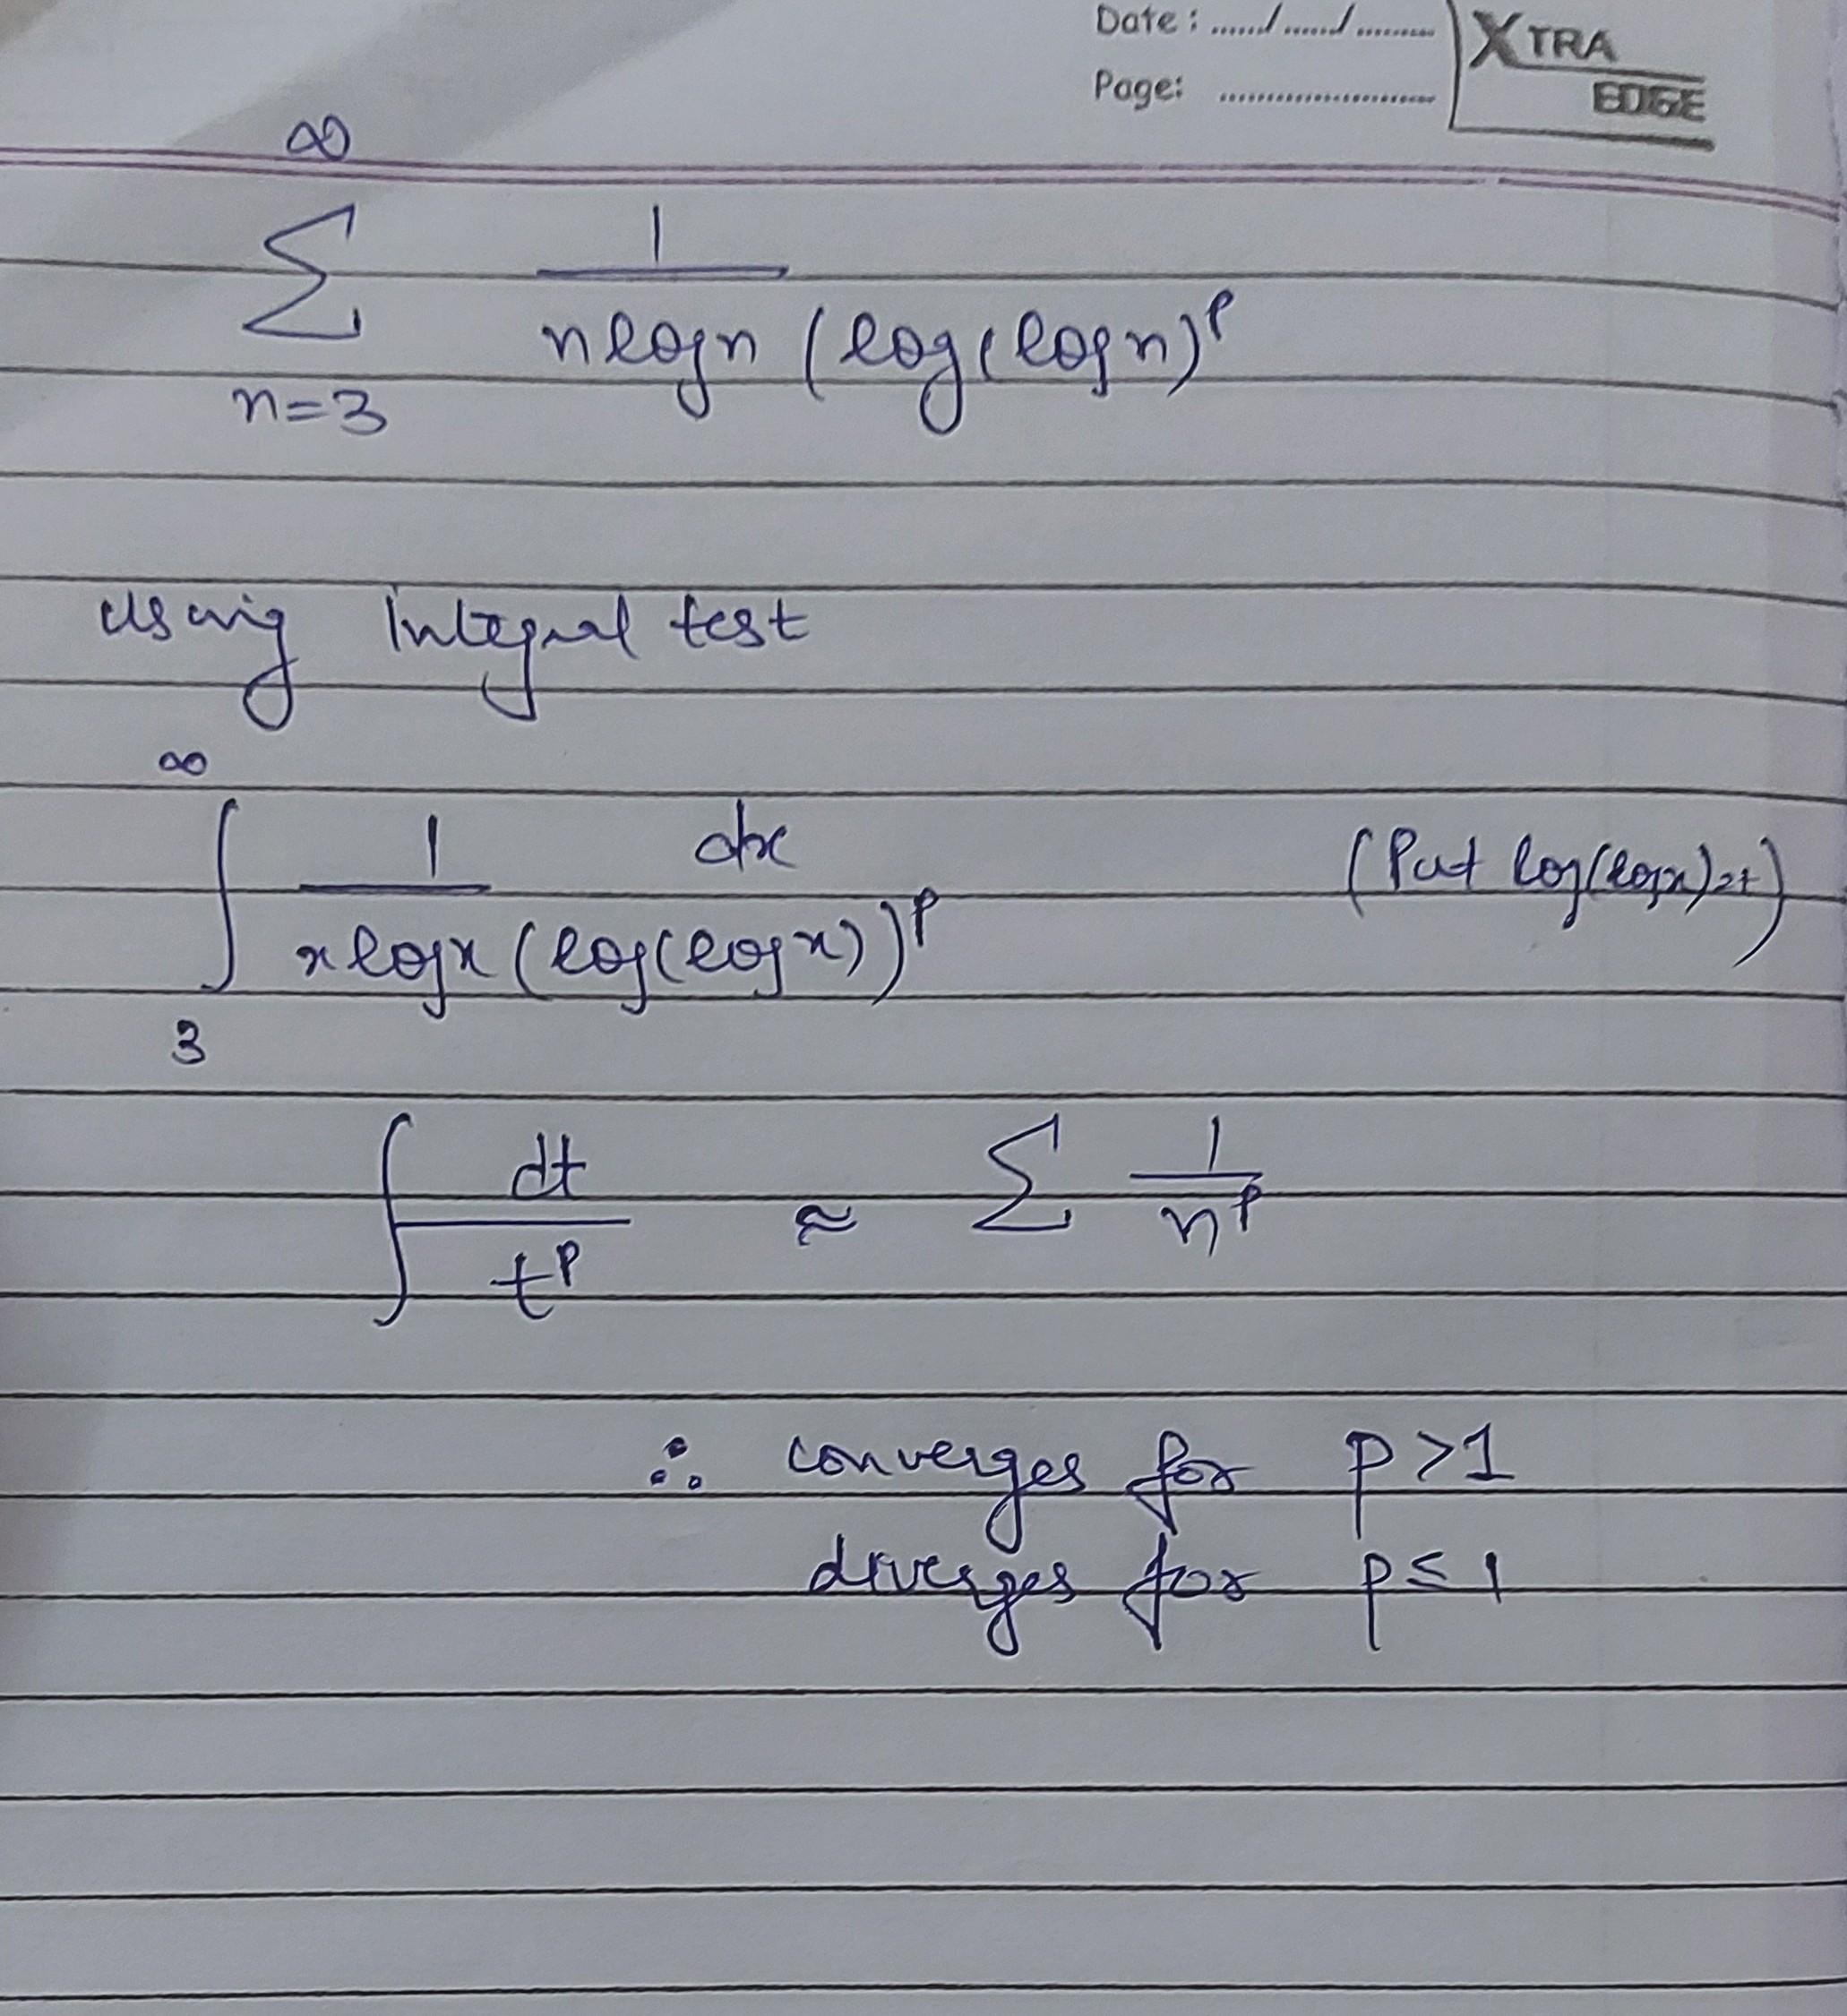 Date : ....../......./..........
Page: ........................
XTRA EDGE
∞
Σ 1
n logn (log(logn)^p
n=3
Using Integral test
∞
∫ 1 dx (Put log(logx)=t)
x logx (log(logx))^p
3
∫ dt ≈ Σ 1
t^p n^p
∴ converges for p>1
diverges for p≤1